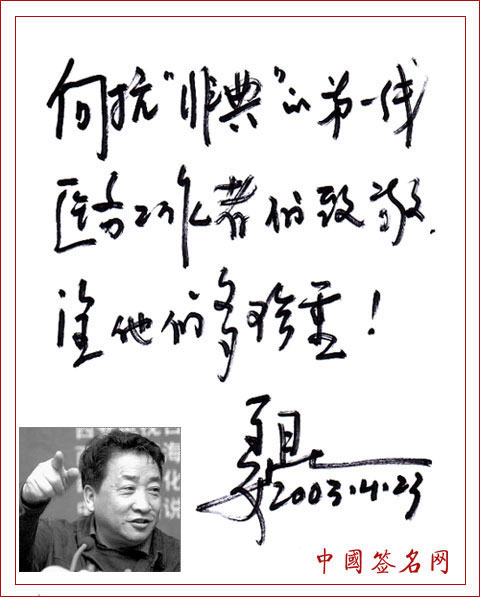 向抗"非典"的第一线
医务工作者们致敬.
望他们多珍重!
2003.4.23
中國签名网